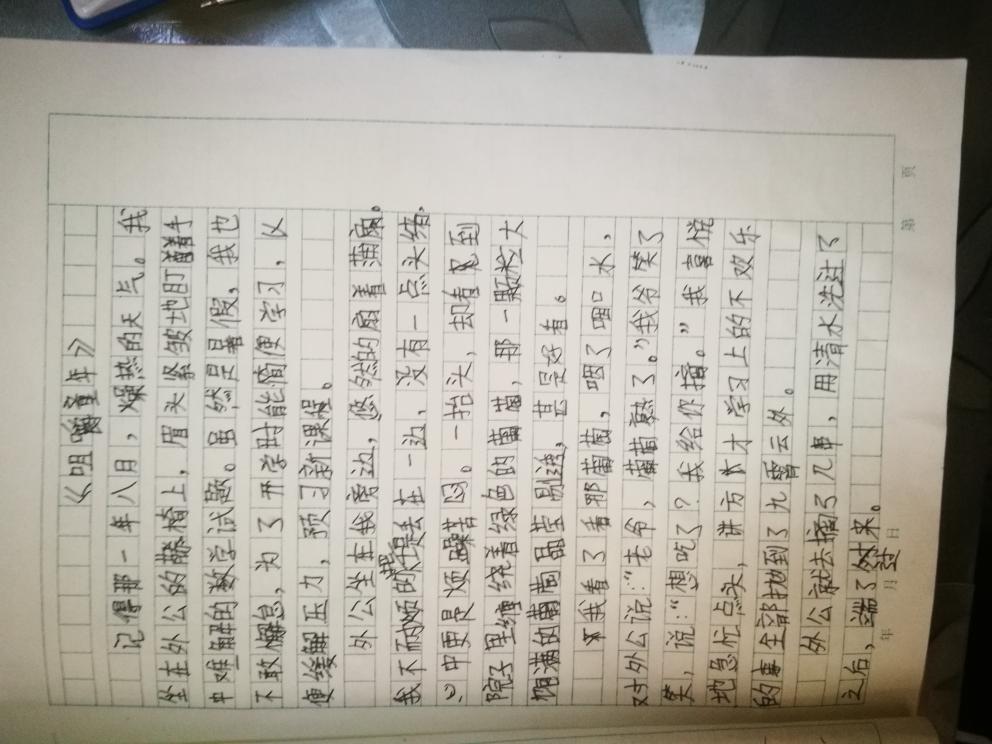 《咀嚼童年》
记得那一年八月，燥热的天气。我
坐在外公的藤椅上，眉头紧皱地盯着手
中难解的数学试题。虽然是暑假，我也
不敢懈怠，为了开学时能简便学习，以
便缓解压力，预习新课程。
外公坐在我旁边，悠然的扇着蒲扇。
我不耐烦的把题丢在一边，没有一点头绪，
心中更是烦躁苦闷。一抬头，却看见到
院子里缠绕着绿色的葡萄，那一颗粒大
饱满的葡萄晶莹剔透，甚是好看。
我看了看那葡萄，咽了咽口水，
对外公说：“老爷，葡萄熟了。”我爷笑了
笑，说：“想吃了？我给你摘。”我喜悦
地急忙点头，讲方才学习上的不欢乐
的事全部抛到了九霄云外。
外公就去摘了几串，用清水洗过了
之后，端了过来。
第 页
年 月 日